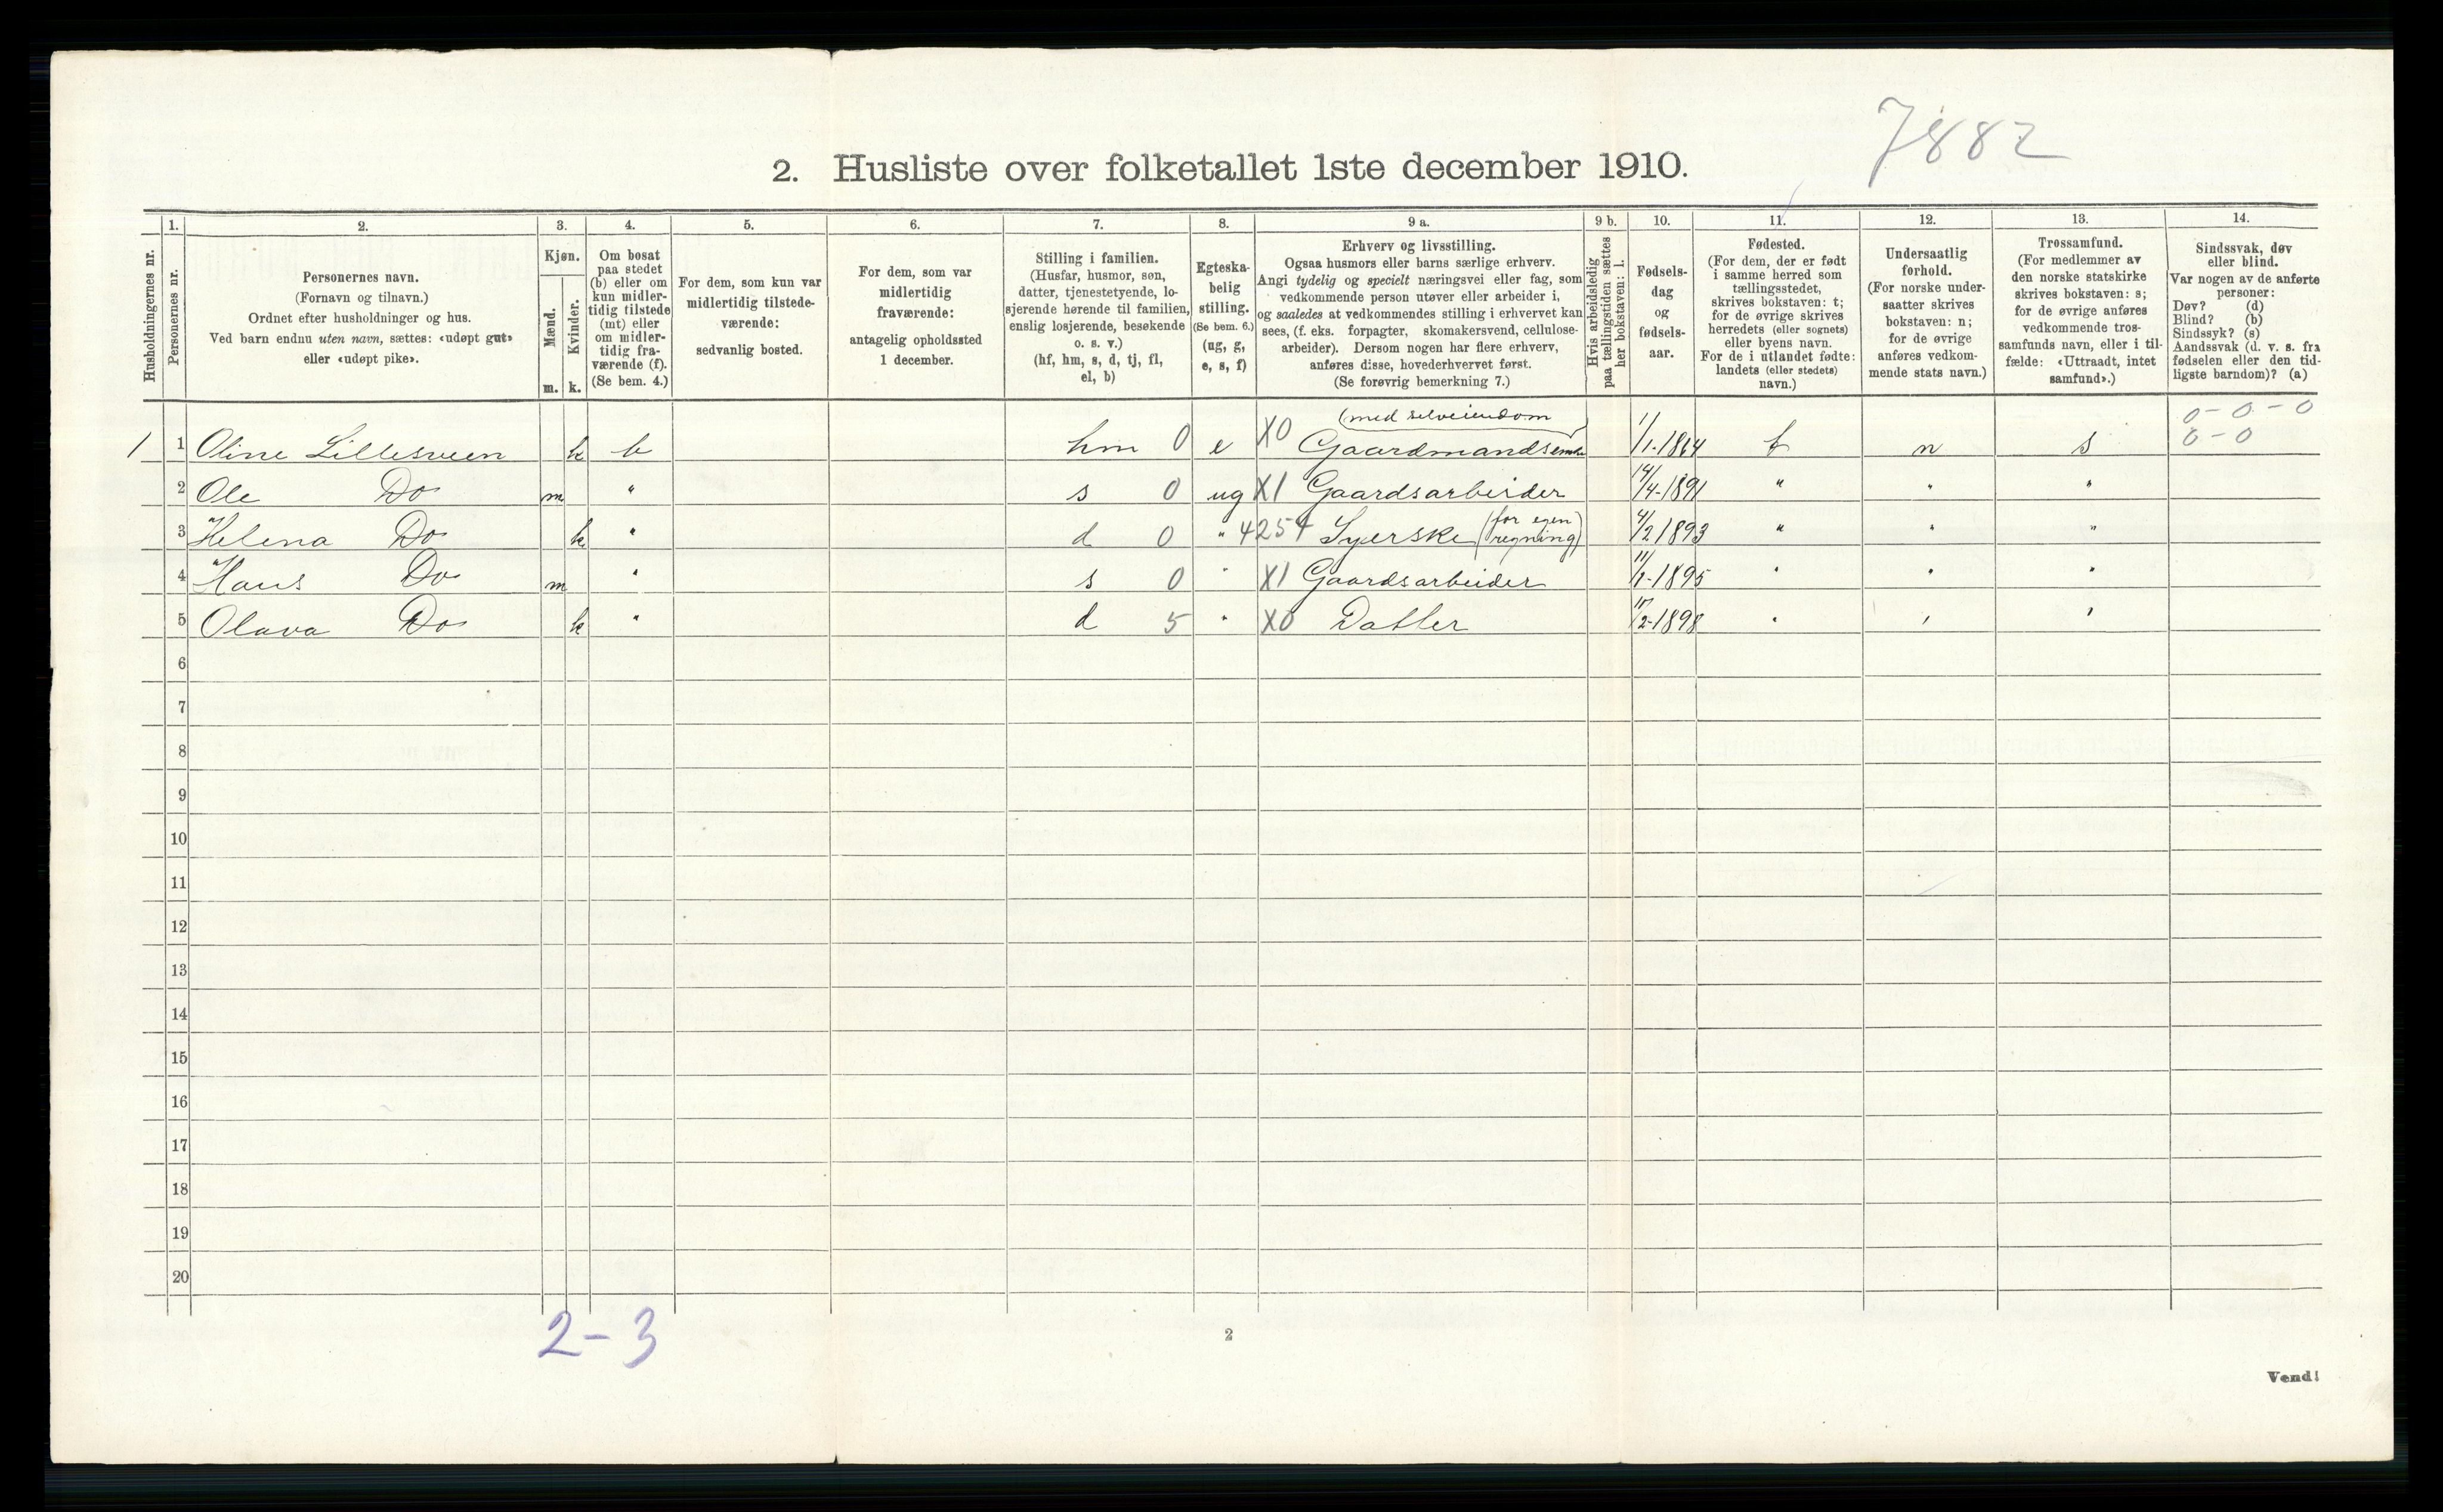 7882
2. Husliste over folketallet 1ste december 1910.
Husholdningernes nr.
1.
Personernes nr.
2.
Personernes navn.
(Fornavn og tilnavn.)
Ordnet efter husholdninger og hus.
Ved barn endnu uten navn, sættes: «udøpt gut»
eller «udøpt pike».
3.
Kjøn.
Mænd.
m.
Kvinder.
k.
4.
Om bosat
paa stedet
(b) eller om
kun midler-
tidig tilstede
(mt) eller
om midler-
tidig fra-
værende (f).
(Se bem. 4.)
5.
For dem, som kun var
midlertidig tilstede-
værende:
sedvanlig bosted.
6.
For dem, som var
midlertidig
fraværende:
antagelig opholdssted
1 december.
7.
Stilling i familien.
(Husfar, husmor, søn,
datter, tjenestetyende, lo-
sjerende hørende til familien,
enslig losjerende, besøkende
o. s. v.)
(hf, hm, s, d, tj, fl,
el, b)
8.
Egteska-
belig
stilling.
(Se bem. 6.)
(ug, g,
e, s, f)
9 a.
Erhverv og livsstilling.
Ogsaa husmors eller barns særlige erhverv.
Angi tydelig og specielt næringsvei eller fag, som
vedkommende person utøver eller arbeider i,
og saaledes at vedkommendes stilling i erhvervet kan
sees, (f. eks. forpagter, skomakersvend, cellulose-
arbeider). Dersom nogen har flere erhverv,
anføres disse, hovederhvervet først.
(Se forøvrig bemerkning 7.)
9 b.
Hvis arbeidsledig
paa tællingstiden sættes
her bokstaven: l.
10.
Fødsels-
dag
og
fødsels-
aar.
11.
Fødested.
(For dem, der er født
i samme herred som
tællingsstedet,
skrives bokstaven: t;
for de øvrige skrives
herredets (eller sognets)
eller byens navn.
For de i utlandet fødte:
landets (eller stedets)
navn.)
12.
Undersaatlig
forhold.
(For norske under-
saatter skrives
bokstaven: n;
for de øvrige
anføres vedkom-
mende stats navn.)
13.
Trossamfund.
(For medlemmer av
den norske statskirke
skrives bokstaven: s;
for de øvrige anføres
vedkommende tros-
samfunds navn, eller i til-
fælde: «Uttraadt, intet
samfund».)
14.
Sindssvak, døv
eller blind.
Var nogen av de anførte
personer:
Døv? (d)
Blind? (b)
Sindssyk? (s)
Aandssvak (d. v. s. fra
fødselen eller den tid-
ligste barndom)? (a)
(med selveiendom) 0-0-0
1 1 Oline Lillesveen k b hm 0 e X0 Gaardmandsenke 1/1-1864 t n s 0-0
2 Ole Do m " s 0 ug X1 Gaardsarbeider 14/4-1891 " " "
3 Helena Do k " d 0 " 4254 Syerske (for egen regning) 4/2 1893 " " "
4 Hans Do m " s 0 " X1 Gaardsarbeider 11/1-1895 " " "
5 Olava Do k " d 5 " X0 Datter /2-1898 " " "
6
7
8
9
10
11
12
13
14
15
16
17
18
19
20
2-3
2
Vend!